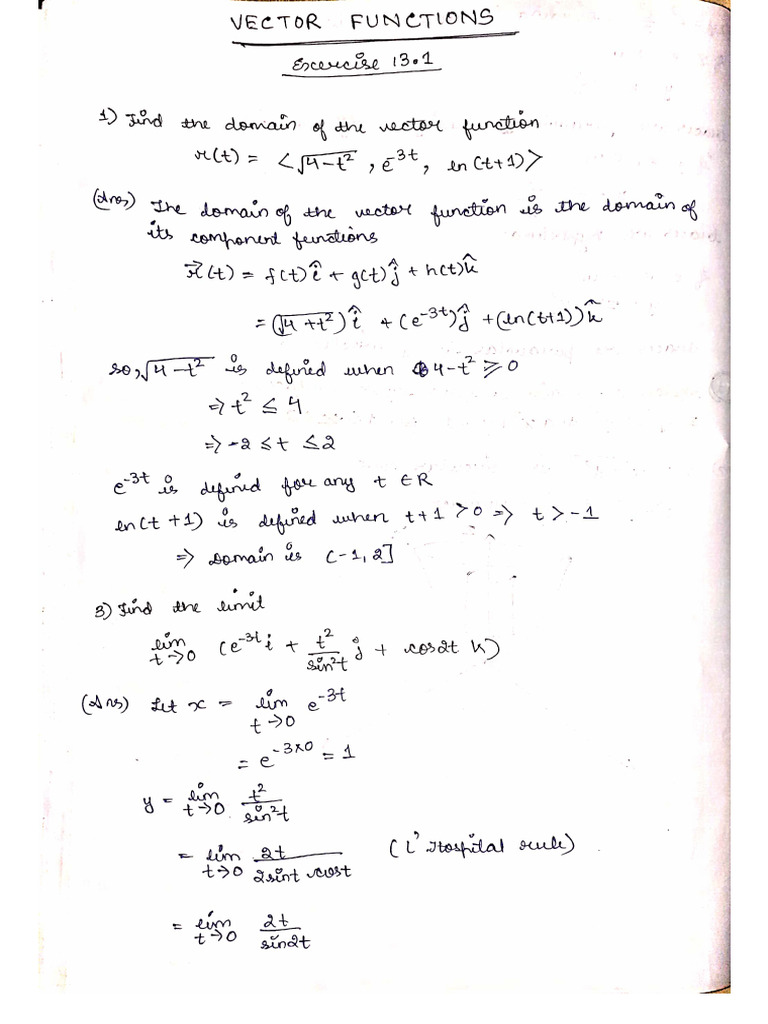 VECTOR FUNCTIONS
Excercise 13.1
1) Find the domain of the vector function
r(t) = <√(4-t²), e^-3t, ln(t+1)>
(Ans) The domain of the vector function is the domain of
its component functions
r⃗(t) = f(t)î + g(t)ĵ + h(t)k̂
= (√(4+t²))î + (e^-3t)ĵ + (ln(t+1))k̂
so, √(4-t²) is defined when 4-t² ≥ 0
⇒ t² ≤ 4
⇒ -2 ≤ t ≤ 2
e^-3t is defined for any t ∈ R
ln(t+1) is defined when t+1 > 0 ⇒ t > -1
⇒ Domain is (-1, 2]
3) Find the limit
lim t→0 (e^-3t i + t²/sin²t j + cos2t k)
(Ans) Let x = lim t→0 e^-3t
= e^-3×0 = 1
y = lim t→0 t²/sin²t
= lim t→0 2t/2sint cost (L' Hospital rule)
= lim t→0 2t/sin2t